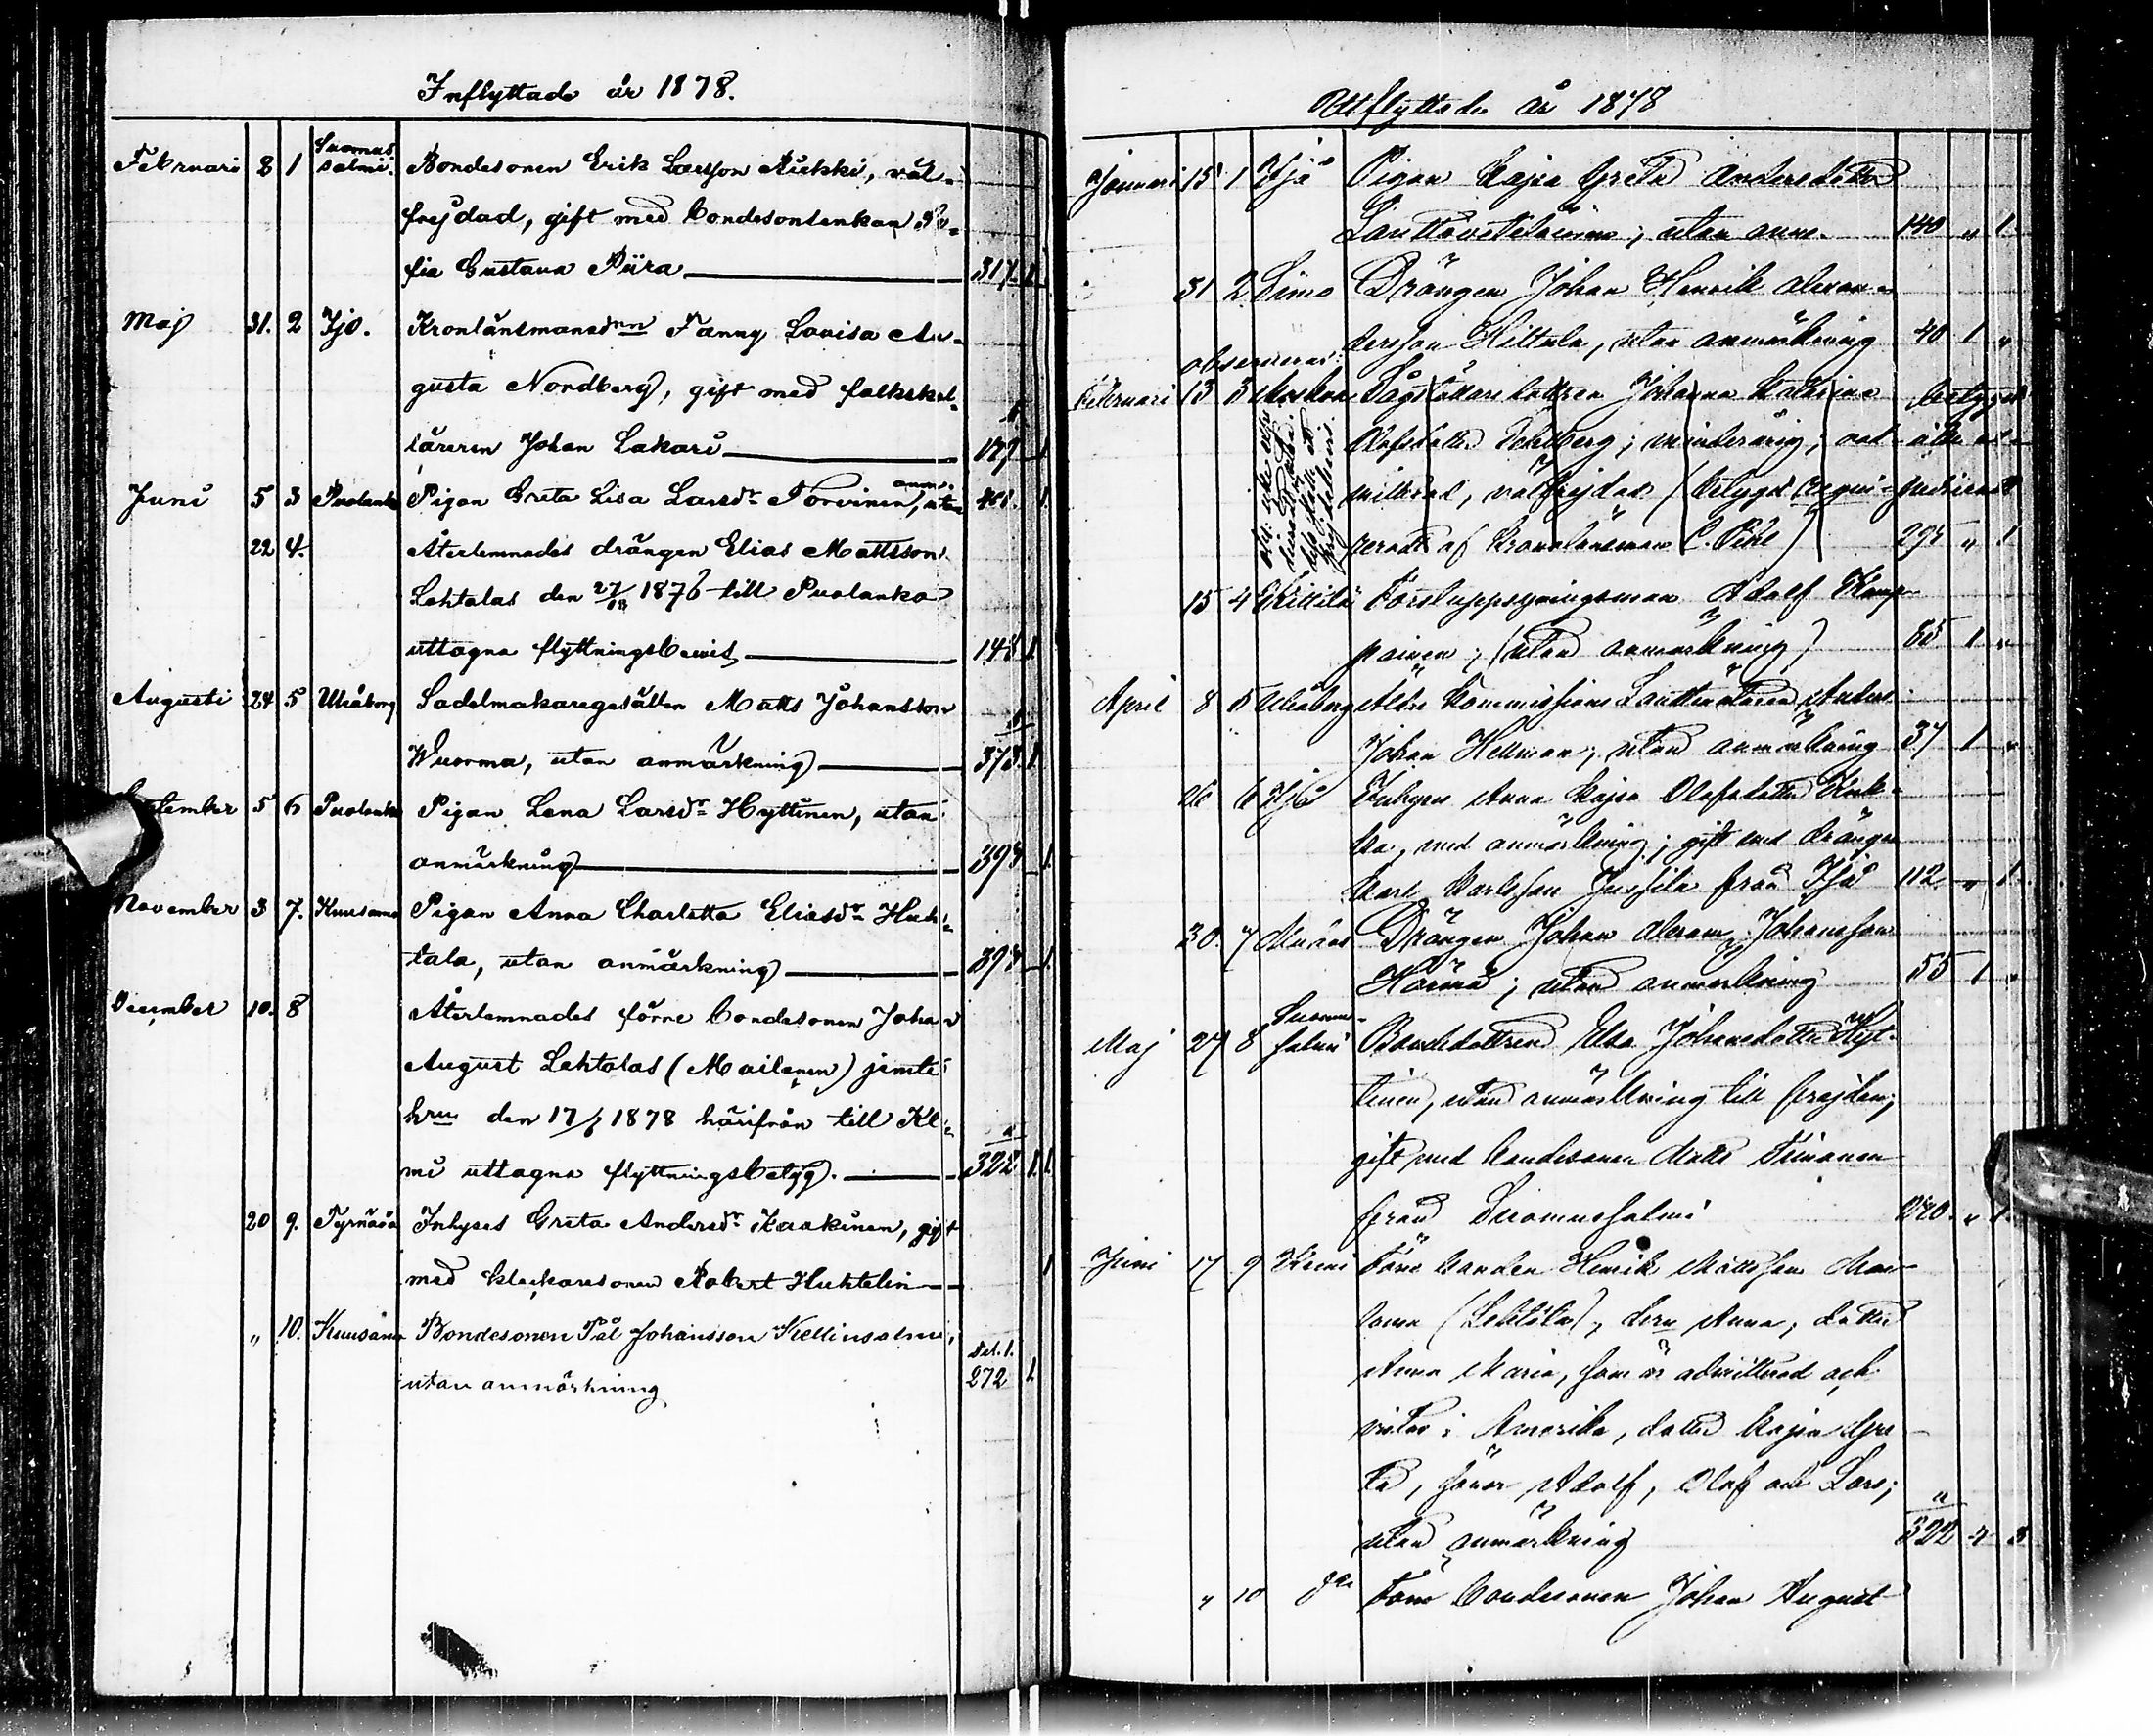 Inflyttade år 1878.
Februari 8 1 Suomussalmi. Bondesonen Erik Larsson Kiekki, väl-
frejdad, gift med bondesonsenkan So-
fia Gustava Piira 317. 1
Maj 31. 2 Ijo. Kronlänsmansdrn Fanny Lovisa Au-
gusta Nordberg, gift med folkskol-
läraren Johan Lakari 177 1
Juni 5 3 Puolanko Pigan Greta Lisa Larsdr Torvinen, utan anm. 1.
22 4. Återlemnades drängen Elias Mattsson
Lehtolas den 27/12 1876 till Puolanko
uttagna flyttningsbevis 148 1
Augusti 24 5 Uleåborg Sadelmakaregesällen Matts Johansson
Wuorma, utan anmärkning 373. 1.
September 5 6 Puolanko Pigan Lena Larsdr Hyttinen, utan
anmärkning 394 1.
November 3 7. Kuusamo Pigan Anna Charlotta Eliasdr Huh-
tala, utan anmärkning 394 1.
December 10. 8 Återlemnades förre bondesonen Johan
August Lehtolas (Mailanen) jemte
hru den 17/6 1878 härifrån till Ke-
mi uttagna flyttningsbetyg. 322 1 1.
20 9. Tyrnävä Inhyses Greta Andersdr Kaakinen, gift
med klockaresonen Robert Huhtelin 1
" 10. Kuusamo Bondesonen Pål Johansson Kellinsalmi,
utan anmärkning Del. 1. 272 1
Utflyttade år 1878
Januari 15 1 Ijo Pigan Kajsa Greta Andersdotter
utan anm. 140 " 1.
31 2 Simo Drängen Johan Henrik Alexan-
dersson Hiltula, utan anmärkning 40 1 "
observeras:
Februari 13 3 Johanna Katarina betyget
Olofsdotter minderårig, oad-
mitterad, välfrejdad (betyget reqvi-
rerad af Kronolänsman C. Pihl) 295 " 1
15 4 Kittilä Forstuppsyningsman Adolf Kamp-
painen; (utan anmärkning) 85 1 "
April 8 5 Uleåborg Äldre Kommissions Landtmätaren Anders
Johan Hellman; utan anmärkning 37 1 "
26 6 Ijo Inhyses Anna Kajsa Olofsdotter
med anmärkning; gift med drängen
Karl Karlsson Jussila från Ijo 112 " 1.
30. 7 Muhos Drängen Johan Abram Johansson
Härmä; utan anmärkning 55 1 "
Maj 27 8 Suomussalmi Bondedottren Elsa Johansdotter Hyt-
tinen, utan anmärkning till frejden;
gift med bondesonen Matts Timonen
från Suomussalmi 240. " 1.
Juni 17 9 Kemi Förre bonden Henrik Mattsson Mai-
lanen (Lehtola), hru Anna, dotter
Anna Maria, som är admitterad och
vistas i Amerika, dotter Kajsa Gre-
ta, söner Adolf, Olof och Lars;
utan anmärkning 322 4 3
" 10 do Förre bondesonen Johan August